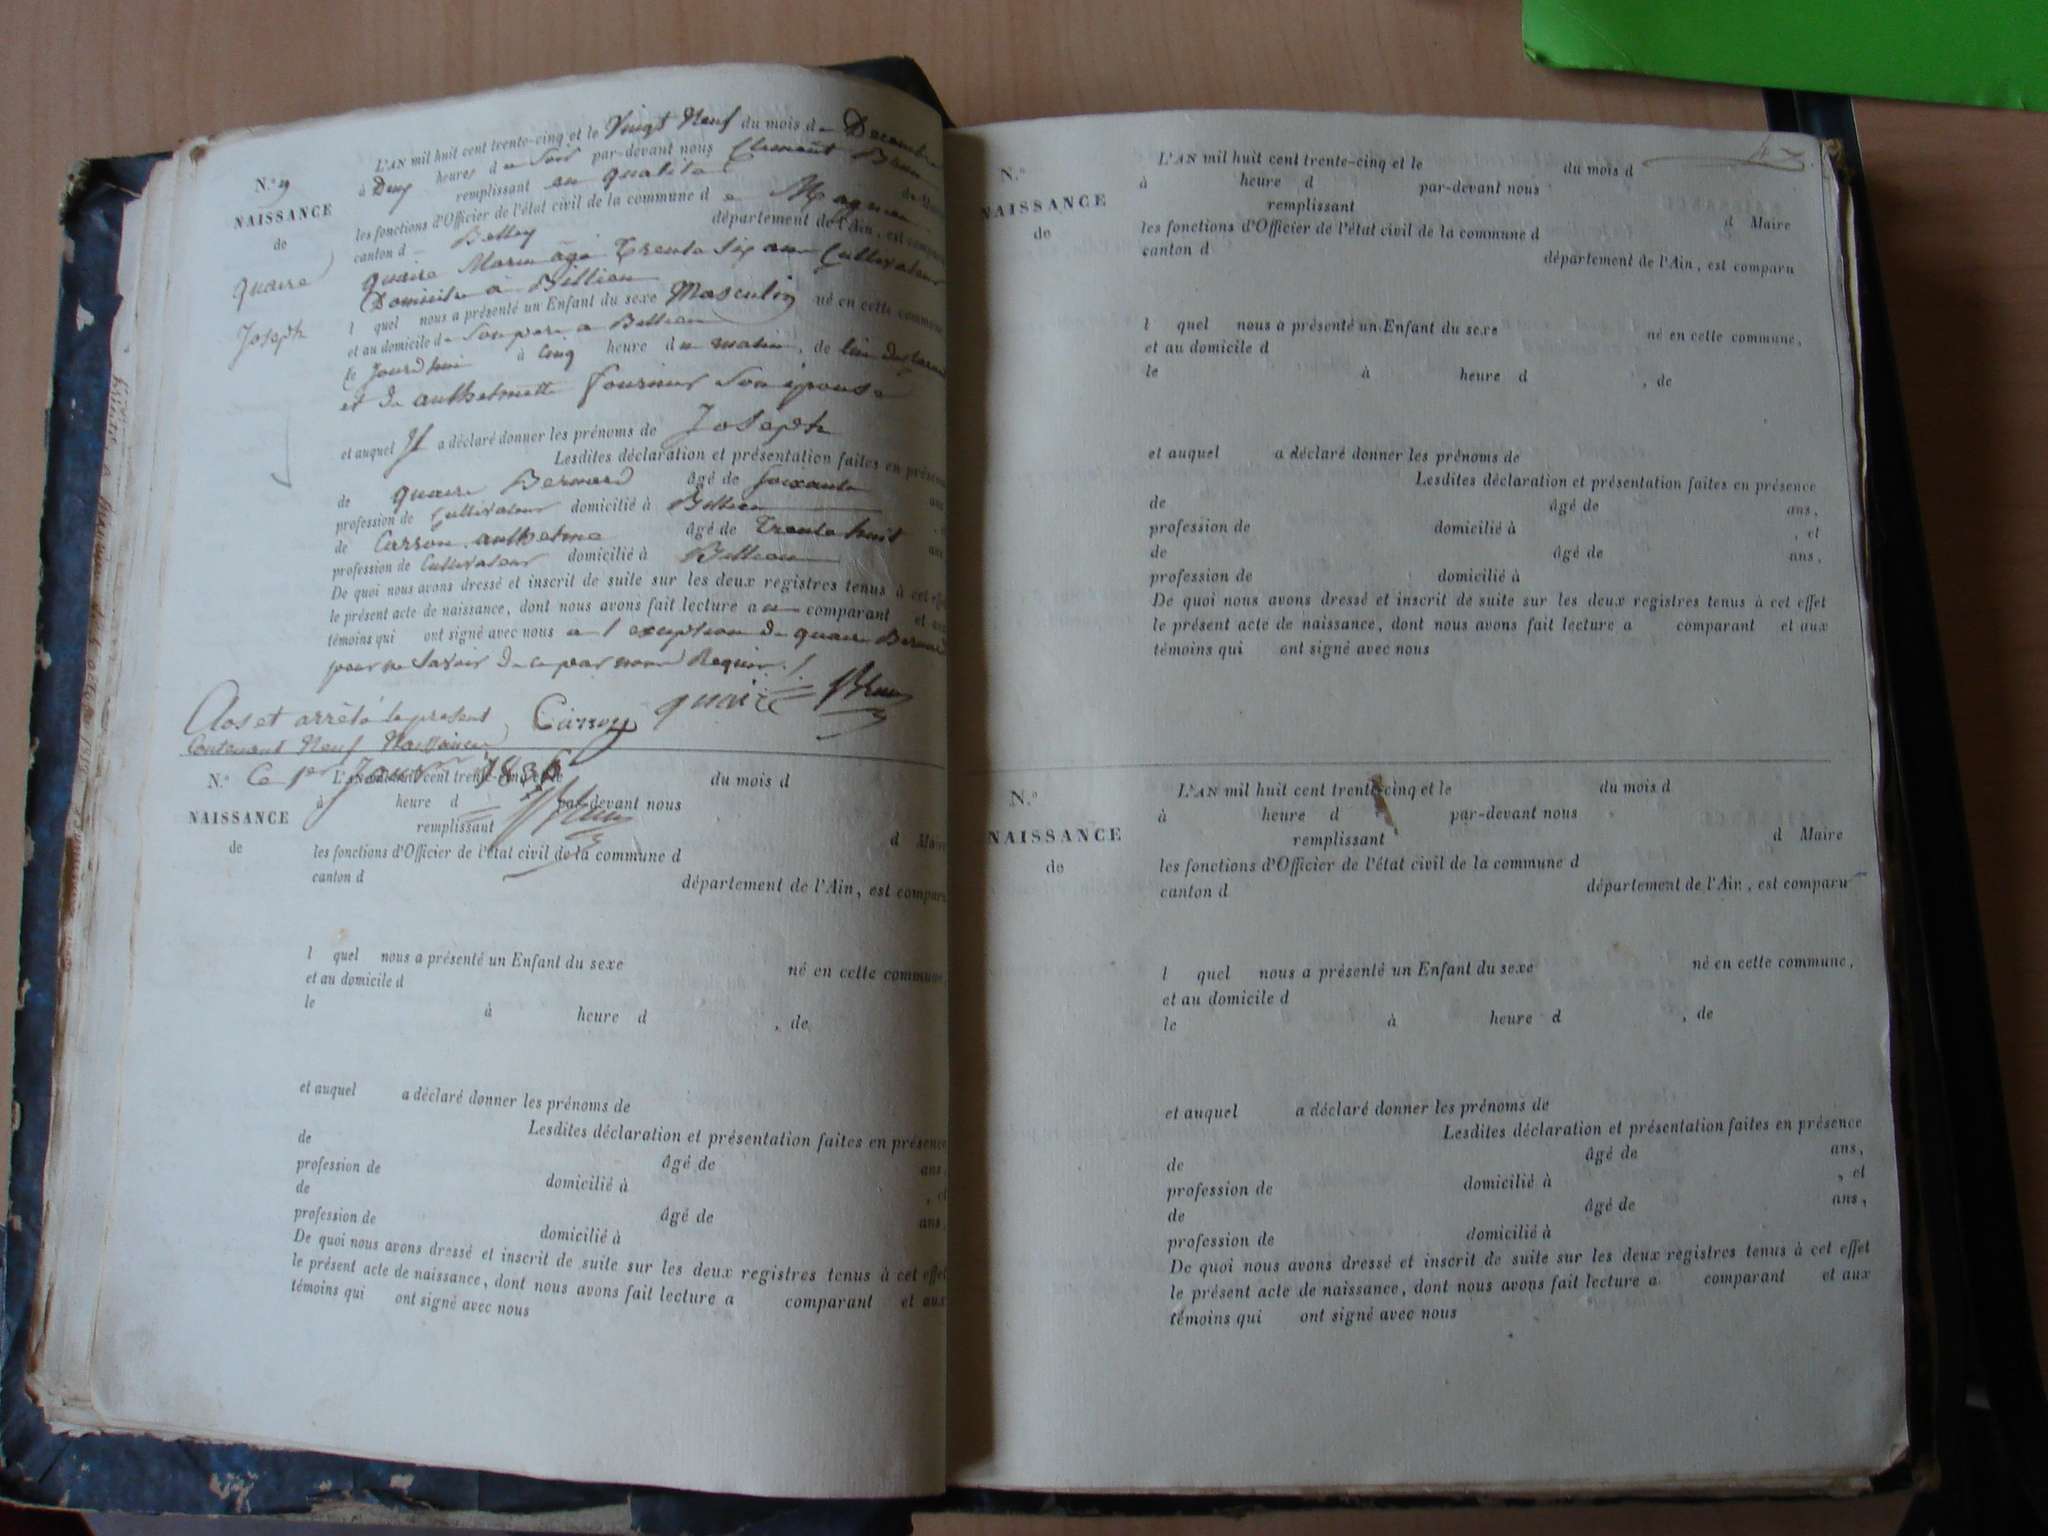 N.° 9
NAISSANCE
de
quaire
Joseph
L'AN mil huit cent trente-cinq et le Vingt Neuf du mois de Decembre
à Deux heures du Soir par-devant nous Clement Brun
remplissant en qualité de Maire
les fonctions d'Officier de l'état civil de la commune de Magnieu
canton de Belley département de l'Ain, est comparu
quaire Marin âgé Trente Six ans Cultivateur
Domicilié à Billieu
l quel nous a présenté un Enfant du sexe Masculin né en cette commune
et au domicile de Son pere a Billieu
le Jourd'hui à Cinq heure du matin, de lui declarant
et de anthelmette fournier Son épouse
et auquel Il a déclaré donner les prénoms de Joseph
Lesdites déclaration et présentation faites en présence
de quaire Bernard âgé de Soixante ans
profession de Cultivateur domicilié à Billieu , et
de Carron anthelme âgé de Trente huit ans
profession de Cultivateur domicilié à Billieu
De quoi nous avons dressé et inscrit de suite sur les deux registres tenus à cet effet
le présent acte de naissance, dont nous avons fait lecture au comparant et aux
témoins qui ont signé avec nous a l'exception de quaire Bernard
pour ne Savoir de ce par nous Requis
Carron quaire Brun
Clos et arrêté le present
Contenant Neuf Naissances
Ce 1er Janv 1836
Brun
N.°
NAISSANCE
de
L'AN mil huit cent trente-cinq et le du mois d
à heure d par-devant nous
remplissant d Maire
les fonctions d'Officier de l'état civil de la commune d
canton d département de l'Ain, est comparu
l quel nous a présenté un Enfant du sexe né en cette commune,
et au domicile d
le à heure d , de
et auquel a déclaré donner les prénoms de
Lesdites déclaration et présentation faites en présence
de âgé de ans,
profession de domicilié à , et
de âgé de ans,
profession de domicilié à
De quoi nous avons dressé et inscrit de suite sur les deux registres tenus à cet effet
le présent acte de naissance, dont nous avons fait lecture a comparant et aux
témoins qui ont signé avec nous
N.°
NAISSANCE
de
L'AN mil huit cent trente-cinq et le du mois d
à heure d par-devant nous
remplissant d Maire
les fonctions d'Officier de l'état civil de la commune d
canton d département de l'Ain, est comparu
l quel nous a présenté un Enfant du sexe né en cette commune,
et au domicile d
le à heure d , de
et auquel a déclaré donner les prénoms de
Lesdites déclaration et présentation faites en présence
de âgé de ans,
profession de domicilié à , et
de âgé de ans,
profession de domicilié à
De quoi nous avons dressé et inscrit de suite sur les deux registres tenus à cet effet
le présent acte de naissance, dont nous avons fait lecture a comparant et aux
témoins qui ont signé avec nous
N.°
NAISSANCE
de
L'AN mil huit cent trente-cinq et le du mois d
à heure d par-devant nous
remplissant d Maire
les fonctions d'Officier de l'état civil de la commune d
canton d département de l'Ain, est comparu
l quel nous a présenté un Enfant du sexe né en cette commune,
et au domicile d
le à heure d , de
et auquel a déclaré donner les prénoms de
Lesdites déclaration et présentation faites en présence
de âgé de ans,
profession de domicilié à , et
de âgé de ans,
profession de domicilié à
De quoi nous avons dressé et inscrit de suite sur les deux registres tenus à cet effet
le présent acte de naissance, dont nous avons fait lecture a comparant et aux
témoins qui ont signé avec nous